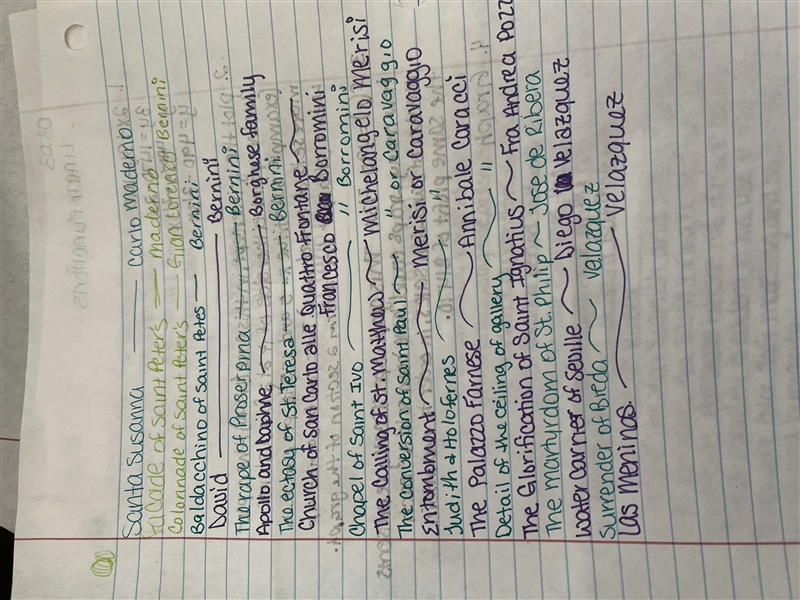 Santa Susanna — Carlo Maderno
Facade of Saint Peters — Maderno
Colonnade of Saint Peter's — Gian Lorenzo Bernini
Baldacchino of Saint Petes — Bernini
David — Bernini
The rape of Proserpina — Bernini
Apollo and Daphne — Borghese family
The ectasy of St. Teresa — Bernini
Church of San Carlo alle Quattro Frontane —
Francesco Borromini
Chapel of Saint Ivo — " Borromini
The Calling of St. Matthew ~ Michelangelo Merisi
The Conversion of Saint Paul ~ " or Caravaggio
Entombment ~ Merisi or Caravaggio
Judith & Holofernes ~ "
The Palazzo Farnese ~ Annibale Caracci
Detail of the ceiling of gallery ~ "
The Glorification of Saint Ignatius ~ Fra Andrea Pozz
The martyrdom of St. Philip ~ Jose de Ribera
Water Carrier of Seville ~ Diego Velazquez
Surrender of Breda ~ Velazquez
Las Meninas. ~ Velazquez